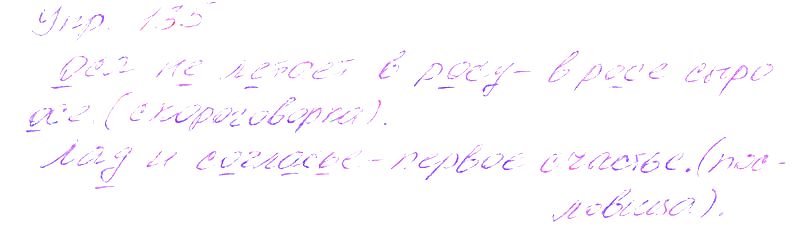 Упр. 135
Оса не летает в росу - в росе сыро
осе. (скороговорка).
Лад и согласье - первое счастье. (пос-
ловица).